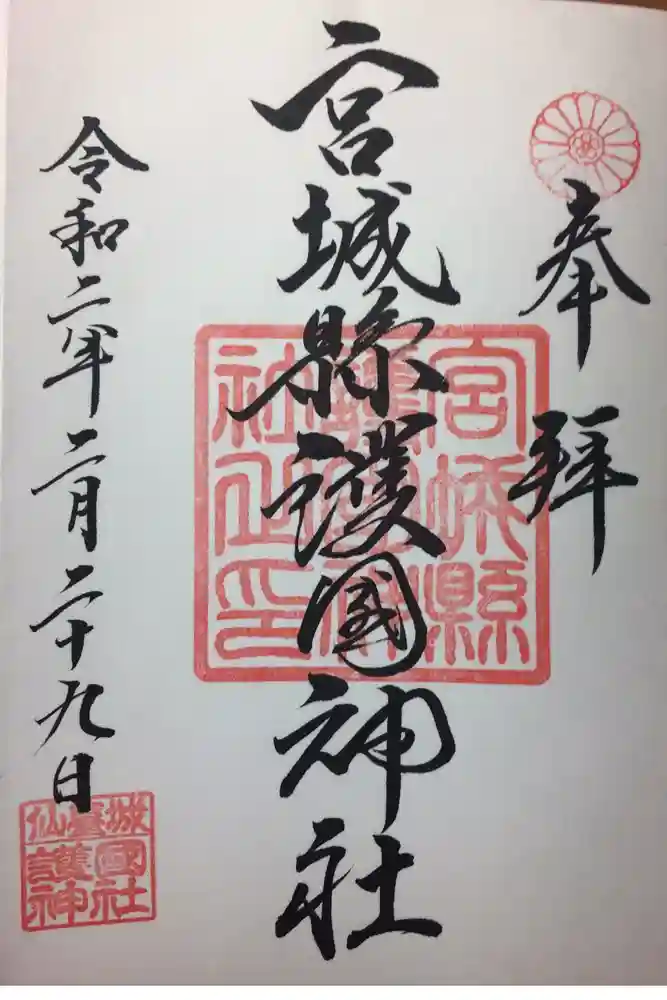 奉拝
宮城縣護國神社
宮城縣護國神社之印
令和二年二月二十九日
仙臺城
護國神社